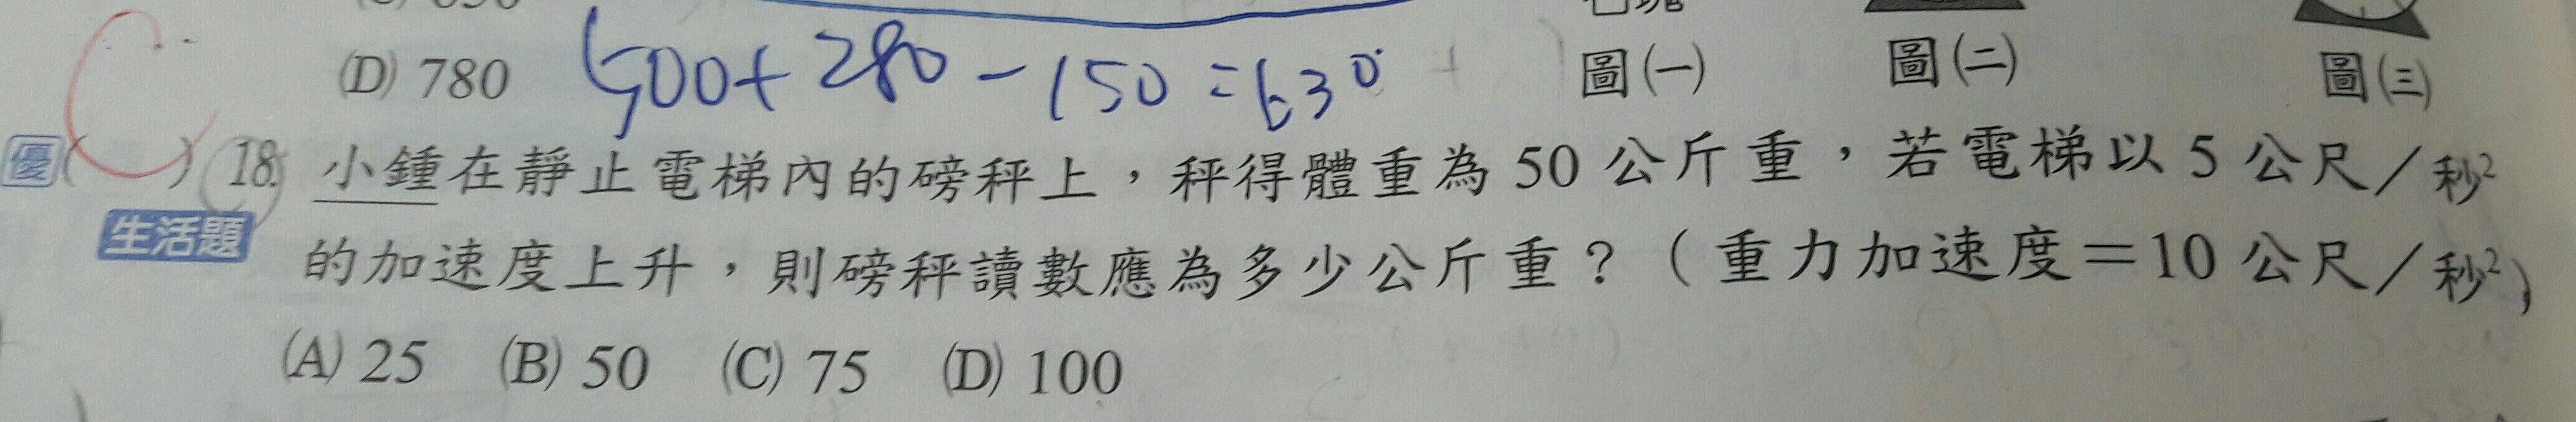 (D) 780 500+280-150=630
圖(一) 圖(二) 圖(三)
優( C ) 18. 小鍾在靜止電梯內的磅秤上，秤得體重為 50 公斤重，若電梯以 5 公尺／秒²
生活題 的加速度上升，則磅秤讀數應為多少公斤重？（重力加速度＝10 公尺／秒²）
(A) 25 (B) 50 (C) 75 (D) 100